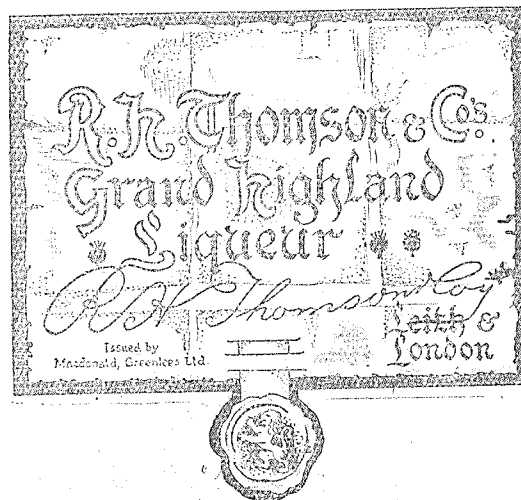 R. H. Thomson & Co's.
Grand Highland
Liqueur
R H Thomson & Coy
Leith &
London
Issued by
Macdonald, Greenlees Ltd.